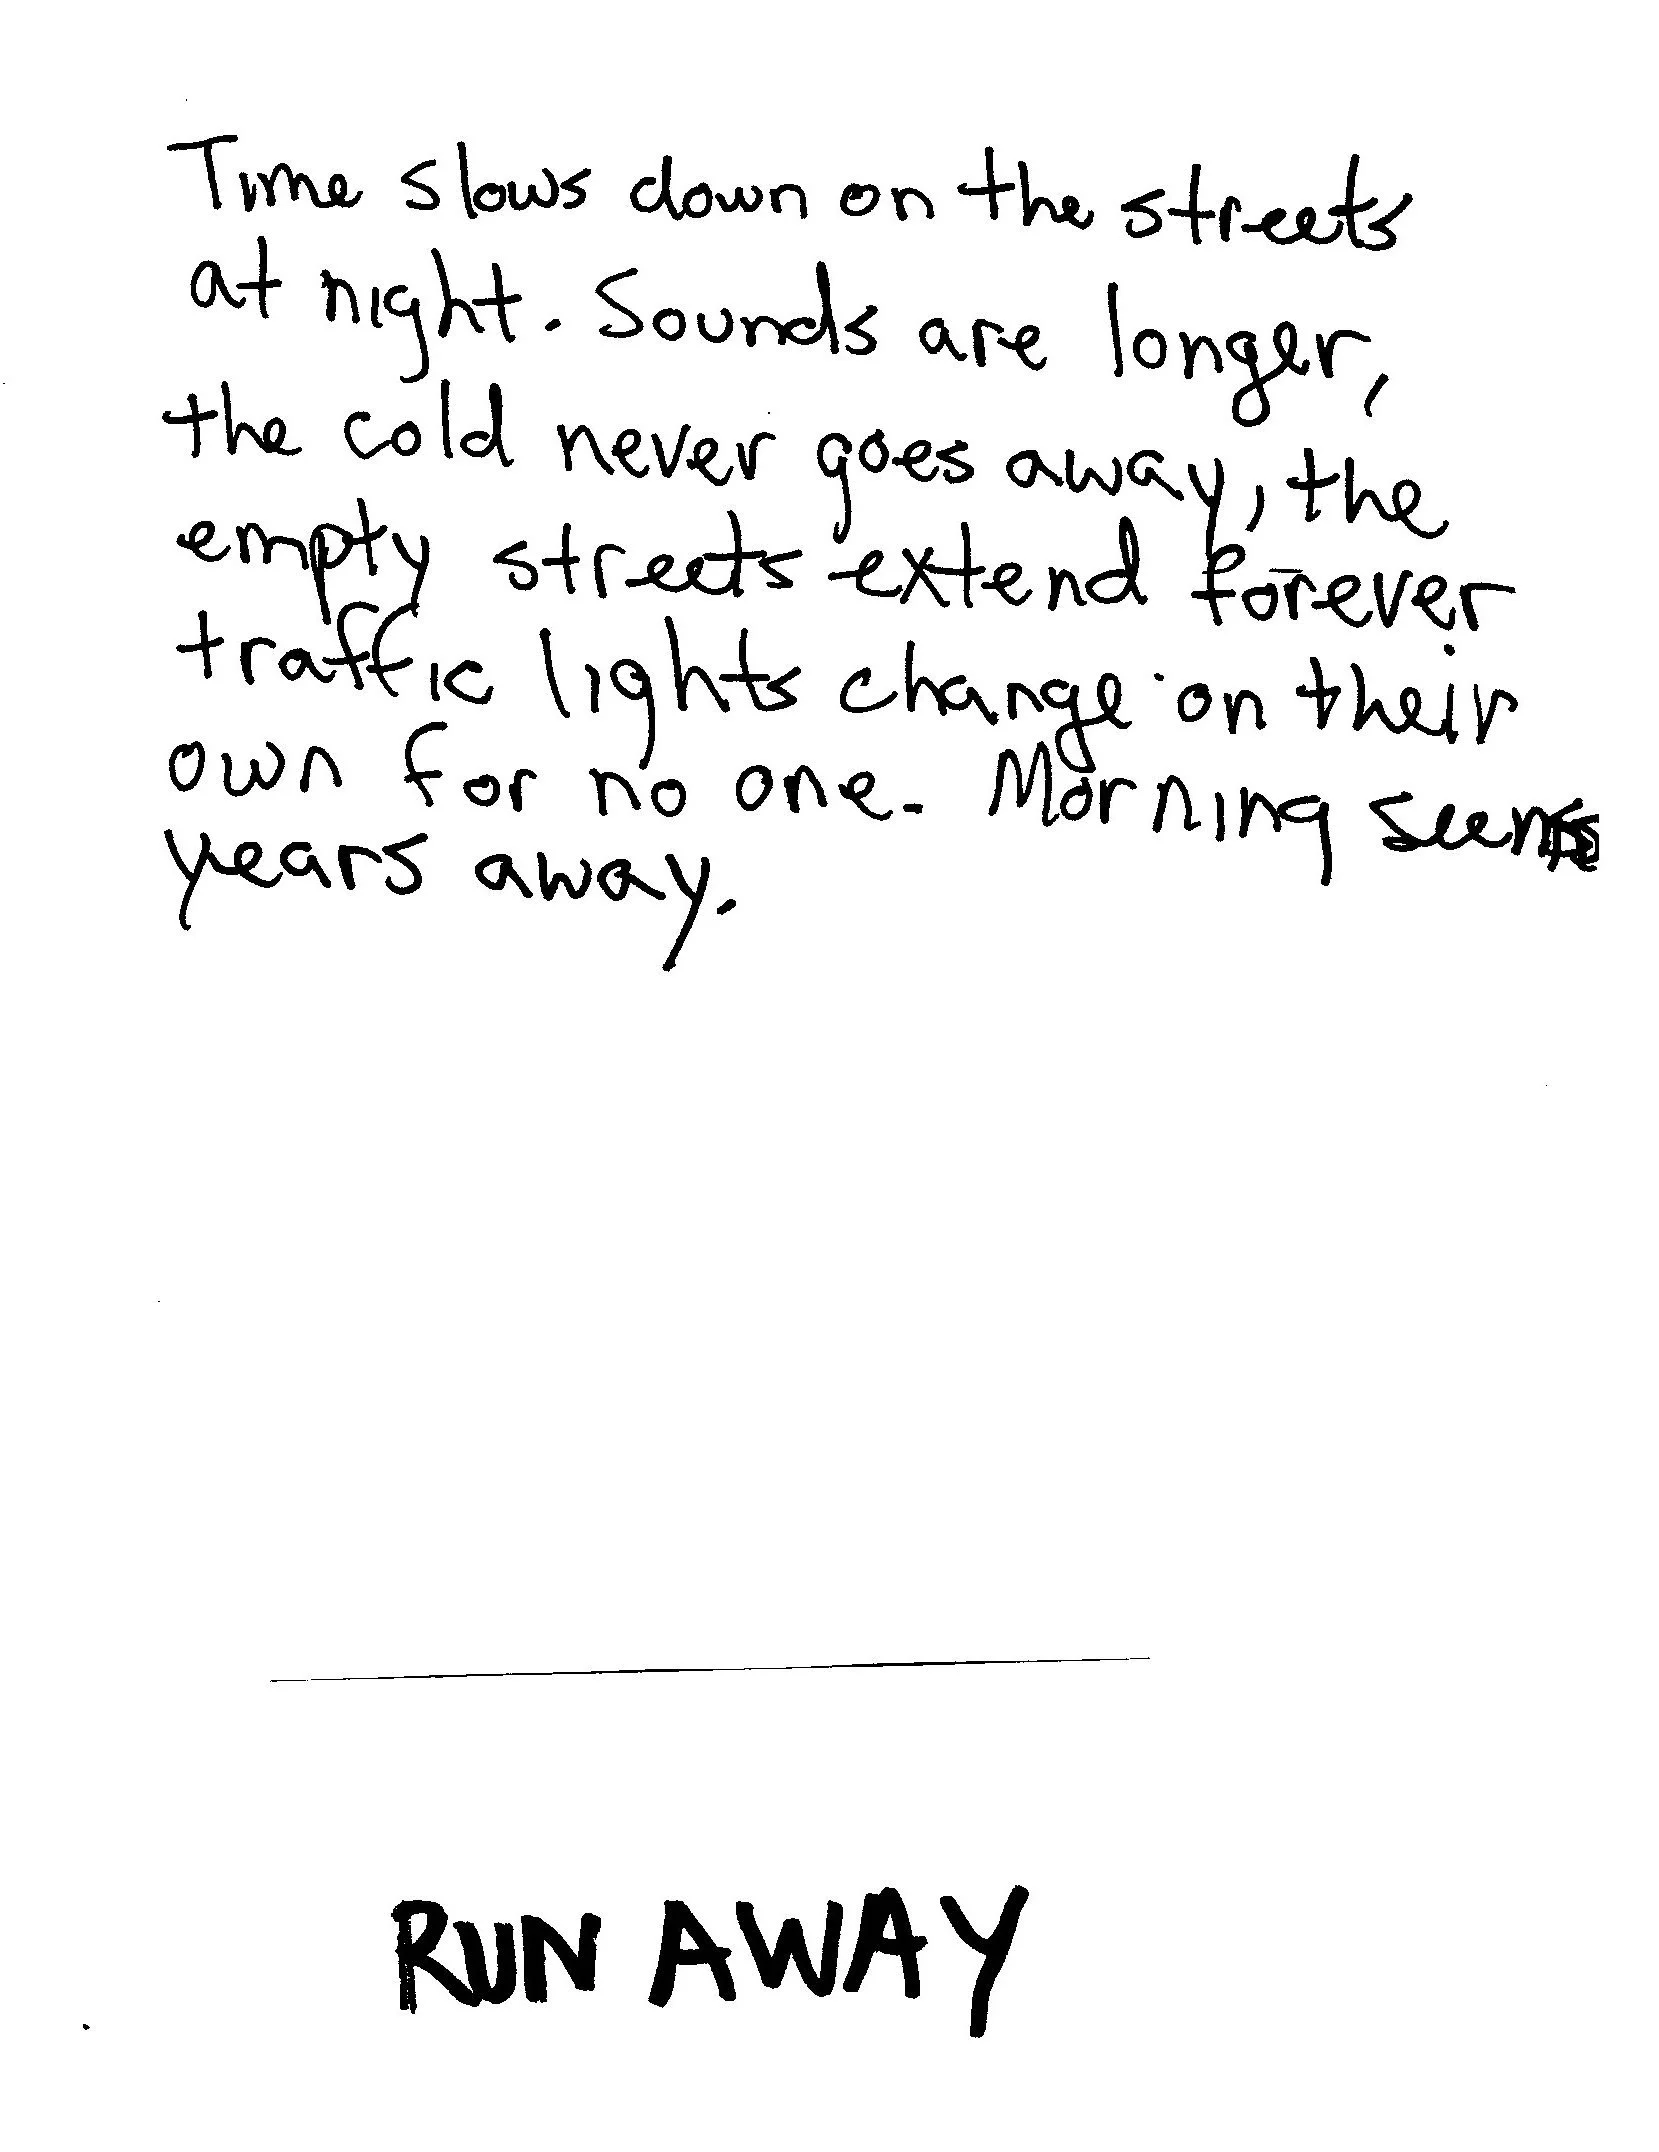 Time slows down on the streets
at night. Sounds are longer,
the cold never goes away, the
empty streets extend forever
traffic lights change on their
own for no one. Morning seems
years away.
RUN AWAY